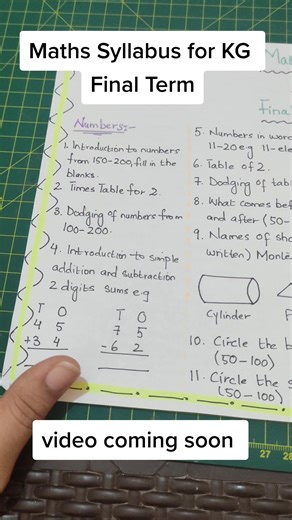 Maths Syllabus for KG
Final Term
Ma
Fina
Numbers:-
1. Introduction to numbers
from 150-200, fill in the
blanks.
2. Times Table for 2.
3. Dodging of numbers from
100-200.
4. Introduction to simple
addition and subtraction
2 digits sums eg
T O
4 5
+3 4
T O
7 5
-6 2
5. Numbers in wor
11-20 eg 11-ele
6. Table of 2.
7. Dodging of tab
8. What comes bef
and after (50-
9. Names of sha
written) Monte
Cylinder
10. Circle the b
(50-100)
11. Circle the s
(50-100)
video coming soon
27
28